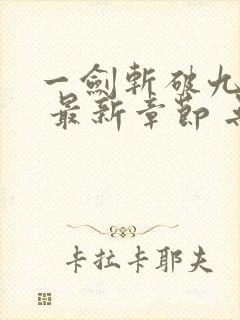 一劍斬破九
最新章節
卡拉卡耶夫